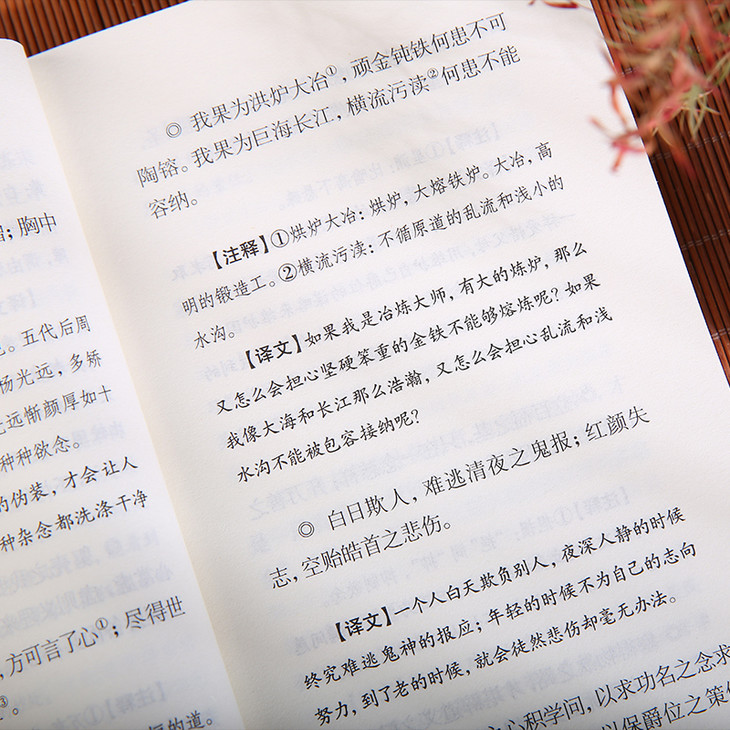 帽；胸中
。五代后周
杨光远，多矫
光远惭颜厚如十
种种欲念。
的伪装，才会让人
种杂念都洗涤干净
，方可言了心①；尽得世
③。
恒的道。
◎ 我果为洪炉大冶①，顽金钝铁何患不可
陶镕。我果为巨海长江，横流污渎②何患不能
容纳。
【注释】①烘炉大冶：烘炉，大熔铁炉。大冶，高
明的锻造工。②横流污渎：不循原道的乱流和浅小的
水沟。
【译文】如果我是冶炼大师，有大的炼炉，那么
又怎么会担心坚硬笨重的金铁不能够熔炼呢？如果
我像大海和长江那么浩瀚，又怎么会担心乱流和浅
水沟不能被包容接纳呢？
◎ 白日欺人，难逃清夜之鬼报；红颜失
志，空贻皓首之悲伤。
【译文】一个人白天欺负别人，夜深人静的时候
终究难逃鬼神的报应；年轻的时候不为自己的志向
努力，到了老的时候，就会徒然悲伤却毫无办法。
心积学问，以求功名之念求
以保爵位之策